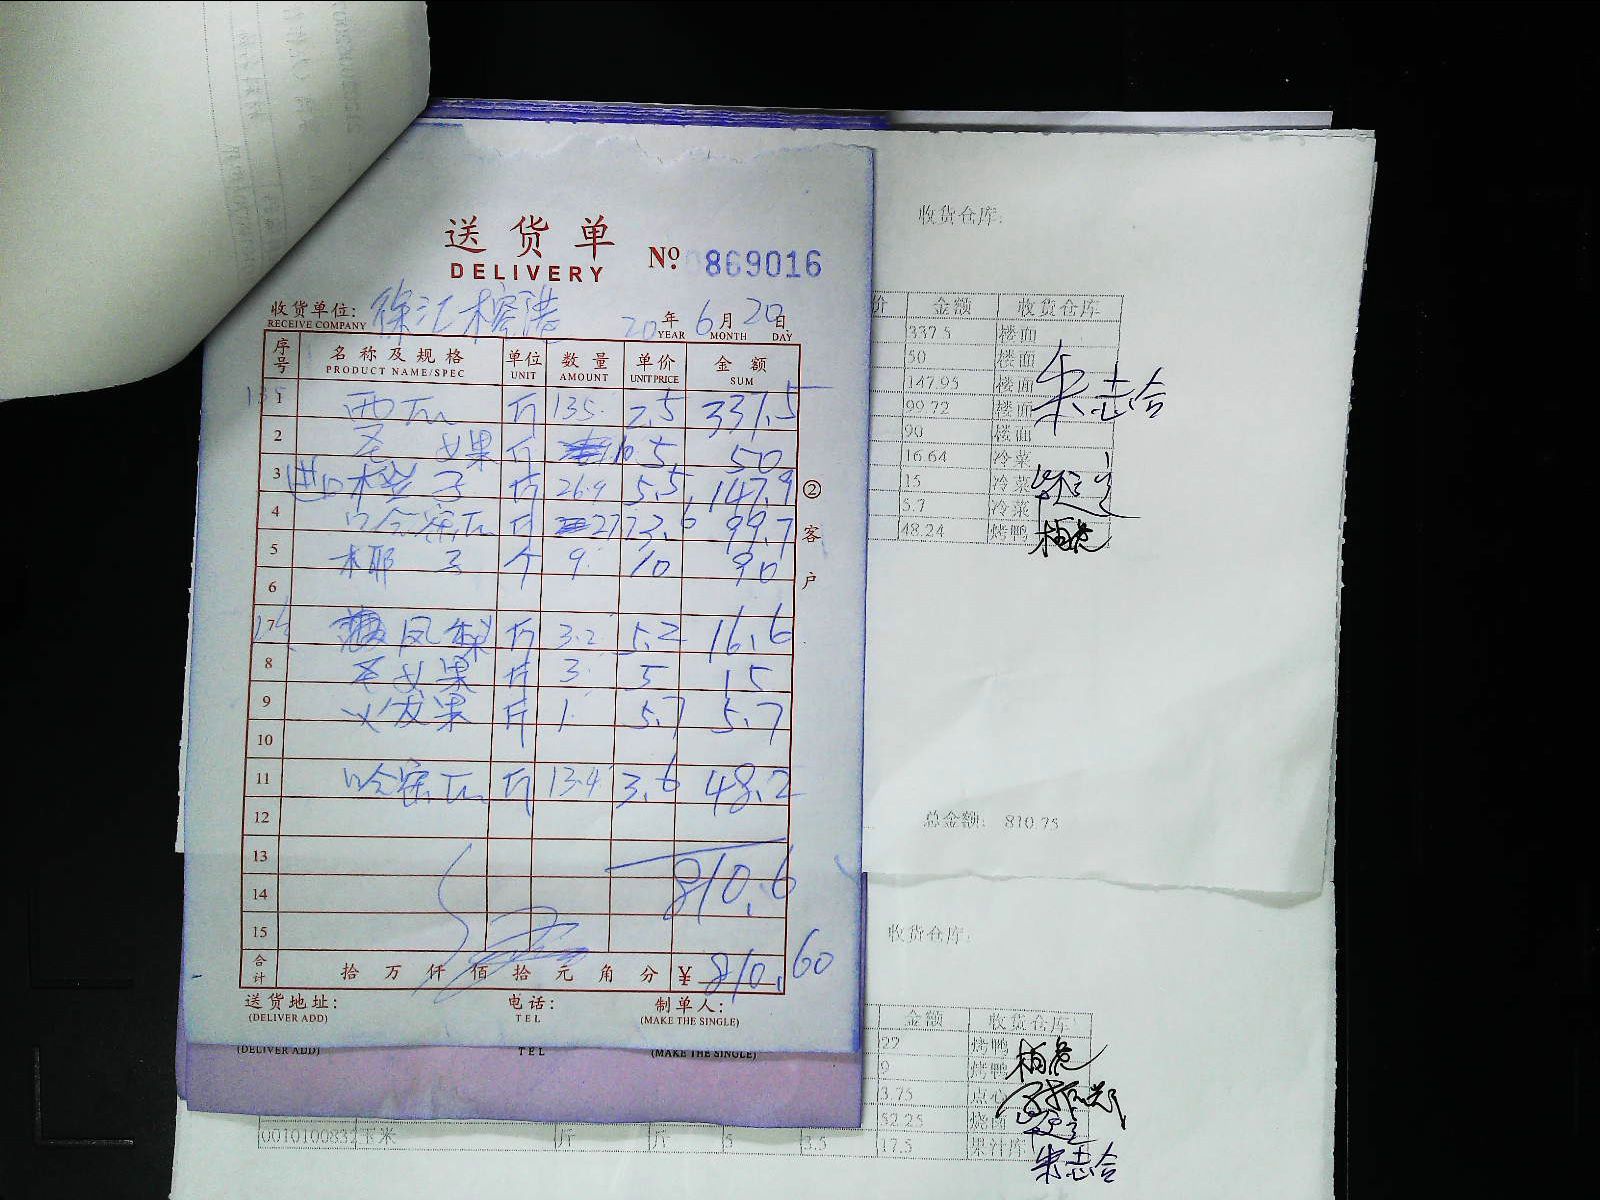 送货单
DELIVERY
Nº 0869016
收货单位: 徐汇
RECEIVE COMPANY
20年 6月 20日
YEAR MONTH DAY
序号 名称及规格 单位 数量 单价 金额
PRODUCT NAME/SPEC UNIT AMOUNT UNIT PRICE SUM
1 西瓜 斤 135 2.5 337.5
2 果 斤 5 50
3 进口 子 斤 26.9 5.5 147.9
4 哈密瓜 斤 27.7 3.6 99.7
5 椰子 个 9 10 90
6
7 凤梨 斤 3.2 5.2 16.6
8 果 斤 3 5 15
9 火龙果 斤 1 5.7 5.7
10
11 哈密瓜 斤 13.4 3.6 48.2
12
13 810.6
14
15
合计 拾万仟佰拾元角分 ¥ 810.60
送货地址: 电话: 制单人:
(DELIVER ADD) TEL (MAKE THE SINGLE)
(DELIVER ADD) TEL (MAKE THE SINGLE)
②客户
收货仓库:
价 金额 收货仓库
337.5 楼面
50 楼面
147.95 楼面 朱志合
99.72 楼面
90 楼面
16.64 冷菜
15 冷菜
5.7 冷菜
48.24 烤鸭
总金额: 810.75
收货仓库:
金额 收货仓库
22 烤鸭
9 烤鸭
3.75 点心
52.25 烧卤
0010100832 玉米 斤 斤 5 3.5 17.5 果汁库
朱志合